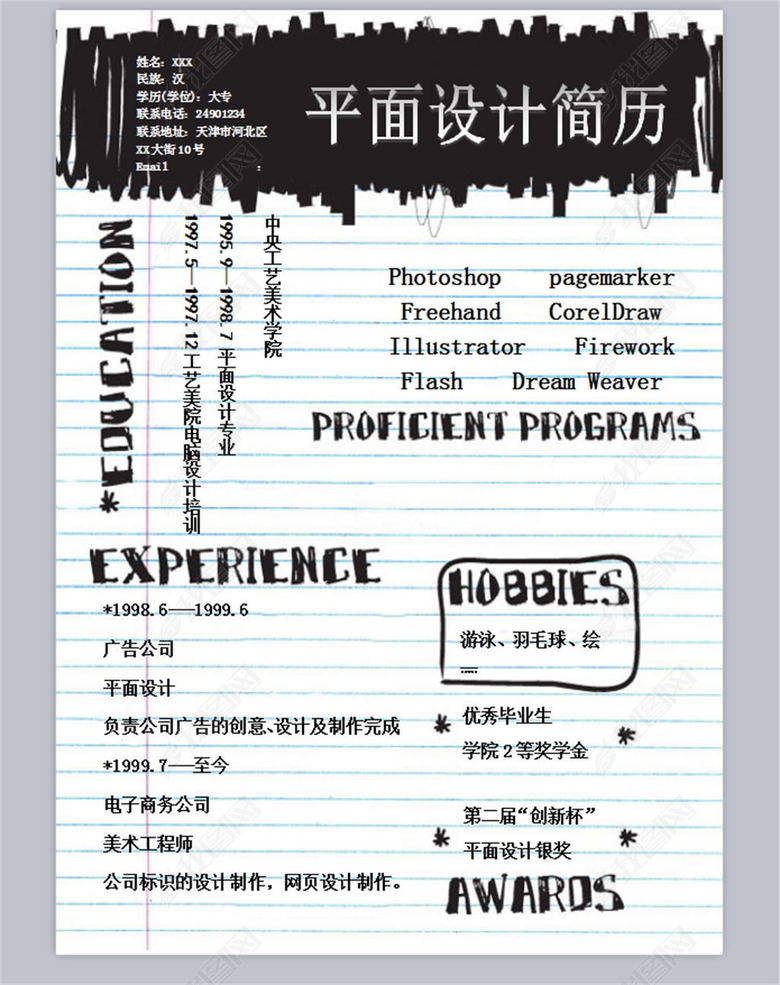 姓名：XXX
民族：汉
学历(学位)：大专
联系电话：24901234
联系地址：天津市河北区
XX大街10号
Email：
平面设计简历
*EDUCATION
中央工艺美术学院
1995.9—1998.7 平面设计专业
1997.5—1997.12 工艺美院电脑设计培训
Photoshop pagemarker
Freehand CorelDraw
Illustrator Firework
Flash Dream Weaver
PROFICIENT PROGRAMS
EXPERIENCE
*1998.6——1999.6
广告公司
平面设计
负责公司广告的创意、设计及制作完成
*1999.7——至今
电子商务公司
美术工程师
公司标识的设计制作，网页设计制作。
HOBBIES
游泳、羽毛球、绘
* 优秀毕业生
学院2等奖学金 *
* 第二届“创新杯” *
平面设计银奖
AWARDS